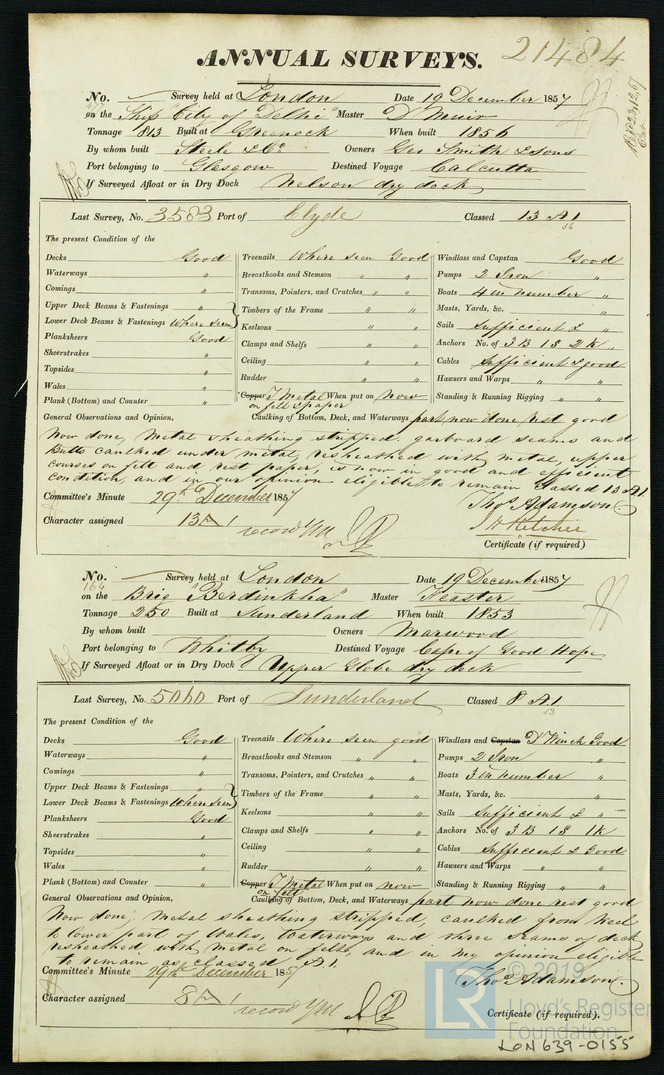 ANNUAL SURVEYS. 21484
No. Survey held at London Date 19 December 1857
on the Ship "City of Delhi" Master D Muir
Tonnage 813 Built at Greenock When built 1856
By whom built Steele & Co Owners Geo Smith & Sons
Port belonging to Glasgow Destined Voyage Calcutta
If Surveyed Afloat or in Dry Dock Nelson dry dock
Last Survey, No. 3583 Port of Clyde Classed 13 A1
56
The present Condition of the
Decks Good
Waterways "
Comings "
Upper Deck Beams & Fastenings "
Lower Deck Beams & Fastenings Where seen
Planksheers Good
Sheerstrakes "
Topsides "
Wales "
Plank (Bottom) and Counter "
Treenails Where seen Good
Breasthooks and Stemson " "
Transoms, Pointers, and Crutches " "
Timbers of the Frame " "
Keelsons " "
Clamps and Shelfs " "
Ceiling " "
Rudder " "
Copper Y Metal When put on now
on felt & paper
Windlass and Capstan Good
Pumps 2 Iron "
Boats 4 in number "
Masts, Yards, &c. "
Sails Sufficient & "
Anchors No. of 3 B 1 S 2 K "
Cables Sufficient & good
Hawsers and Warps " "
Standing & Running Rigging " "
General Observations and Opinion, Caulking of Bottom, Deck, and Waterways part now done rest good
Now done, Metal sheathing stripped, garboard seams and
Butts caulked under metal, resheathed with metal, upper
courses on felt and rest paper, is now in good and efficient
condition, and in our opinion eligible to remain classed 13 A1.
Committee's Minute 29th December 1857 Thos Adamson.
Character assigned 13 A 1
Certificate (if required)
No. Survey held at London Date 19 December 1857
164
on the Brig "Berdinkha" Master Feaster
Tonnage 250 Built at Sunderland When built 1853
By whom built Owners Marwood
Port belonging to Whitby Destined Voyage Cape of Good Hope
If Surveyed Afloat or in Dry Dock Upper Globe dry dock
Last Survey, No. 5060 Port of Sunderland Classed 8 A1
53
The present Condition of the
Decks Good
Waterways "
Comings "
Upper Deck Beams & Fastenings "
Lower Deck Beams & Fastenings Where seen
Planksheers Good
Sheerstrakes "
Topsides "
Wales "
Plank (Bottom) and Counter "
Treenails Where seen good
Breasthooks and Stemson " "
Transoms, Pointers, and Crutches " "
Timbers of the Frame " "
Keelsons " "
Clamps and Shelfs " "
Ceiling " "
Rudder " "
Copper Y Metal When put on now
on felt
Windlass and Capstan Winch Good
Pumps 2 Iron "
Boats 3 in number "
Masts, Yards, &c. "
Sails Sufficient & "
Anchors No. of 3 B 1 S 1 K "
Cables Sufficient & Good
Hawsers and Warps " "
Standing & Running Rigging " "
General Observations and Opinion, Caulking of Bottom, Deck, and Waterways part now done rest good
Now done, Metal sheathing stripped, caulked from keel
to lower part of Wales, Waterways and three seams of deck
resheathed with metal on felt, and in my opinion eligible
to remain as classed 8 A1.
Committee's Minute 29th December 1857 Thos Adamson.
Character assigned 8 A 1
Certificate (if required).
LR © 2019
Lloyd's Register
Foundation
LON639-0155